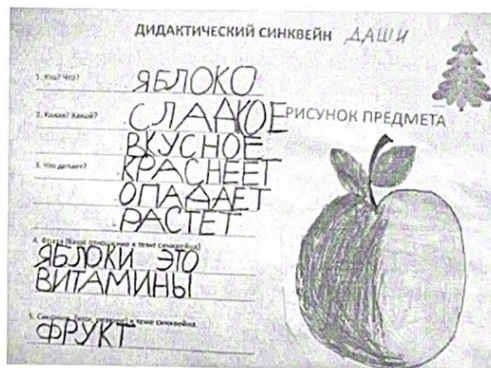 ДИДАКТИЧЕСКИЙ СИНКВЕЙН ДАШИ
1. Кто? Что?
ЯБЛОКО
2. Какая? Какой?
СЛАДКОЕ
ВКУСНОЕ
РИСУНОК ПРЕДМЕТА
3. Что делает?
КРАСНЕЕТ
ОПАДАЕТ
РАСТЕТ
4. Фраза (Ваше отношение к теме синквейна)
ЯБЛОКИ ЭТО
ВИТАМИНЫ
к теме синквейна
ФРУКТ